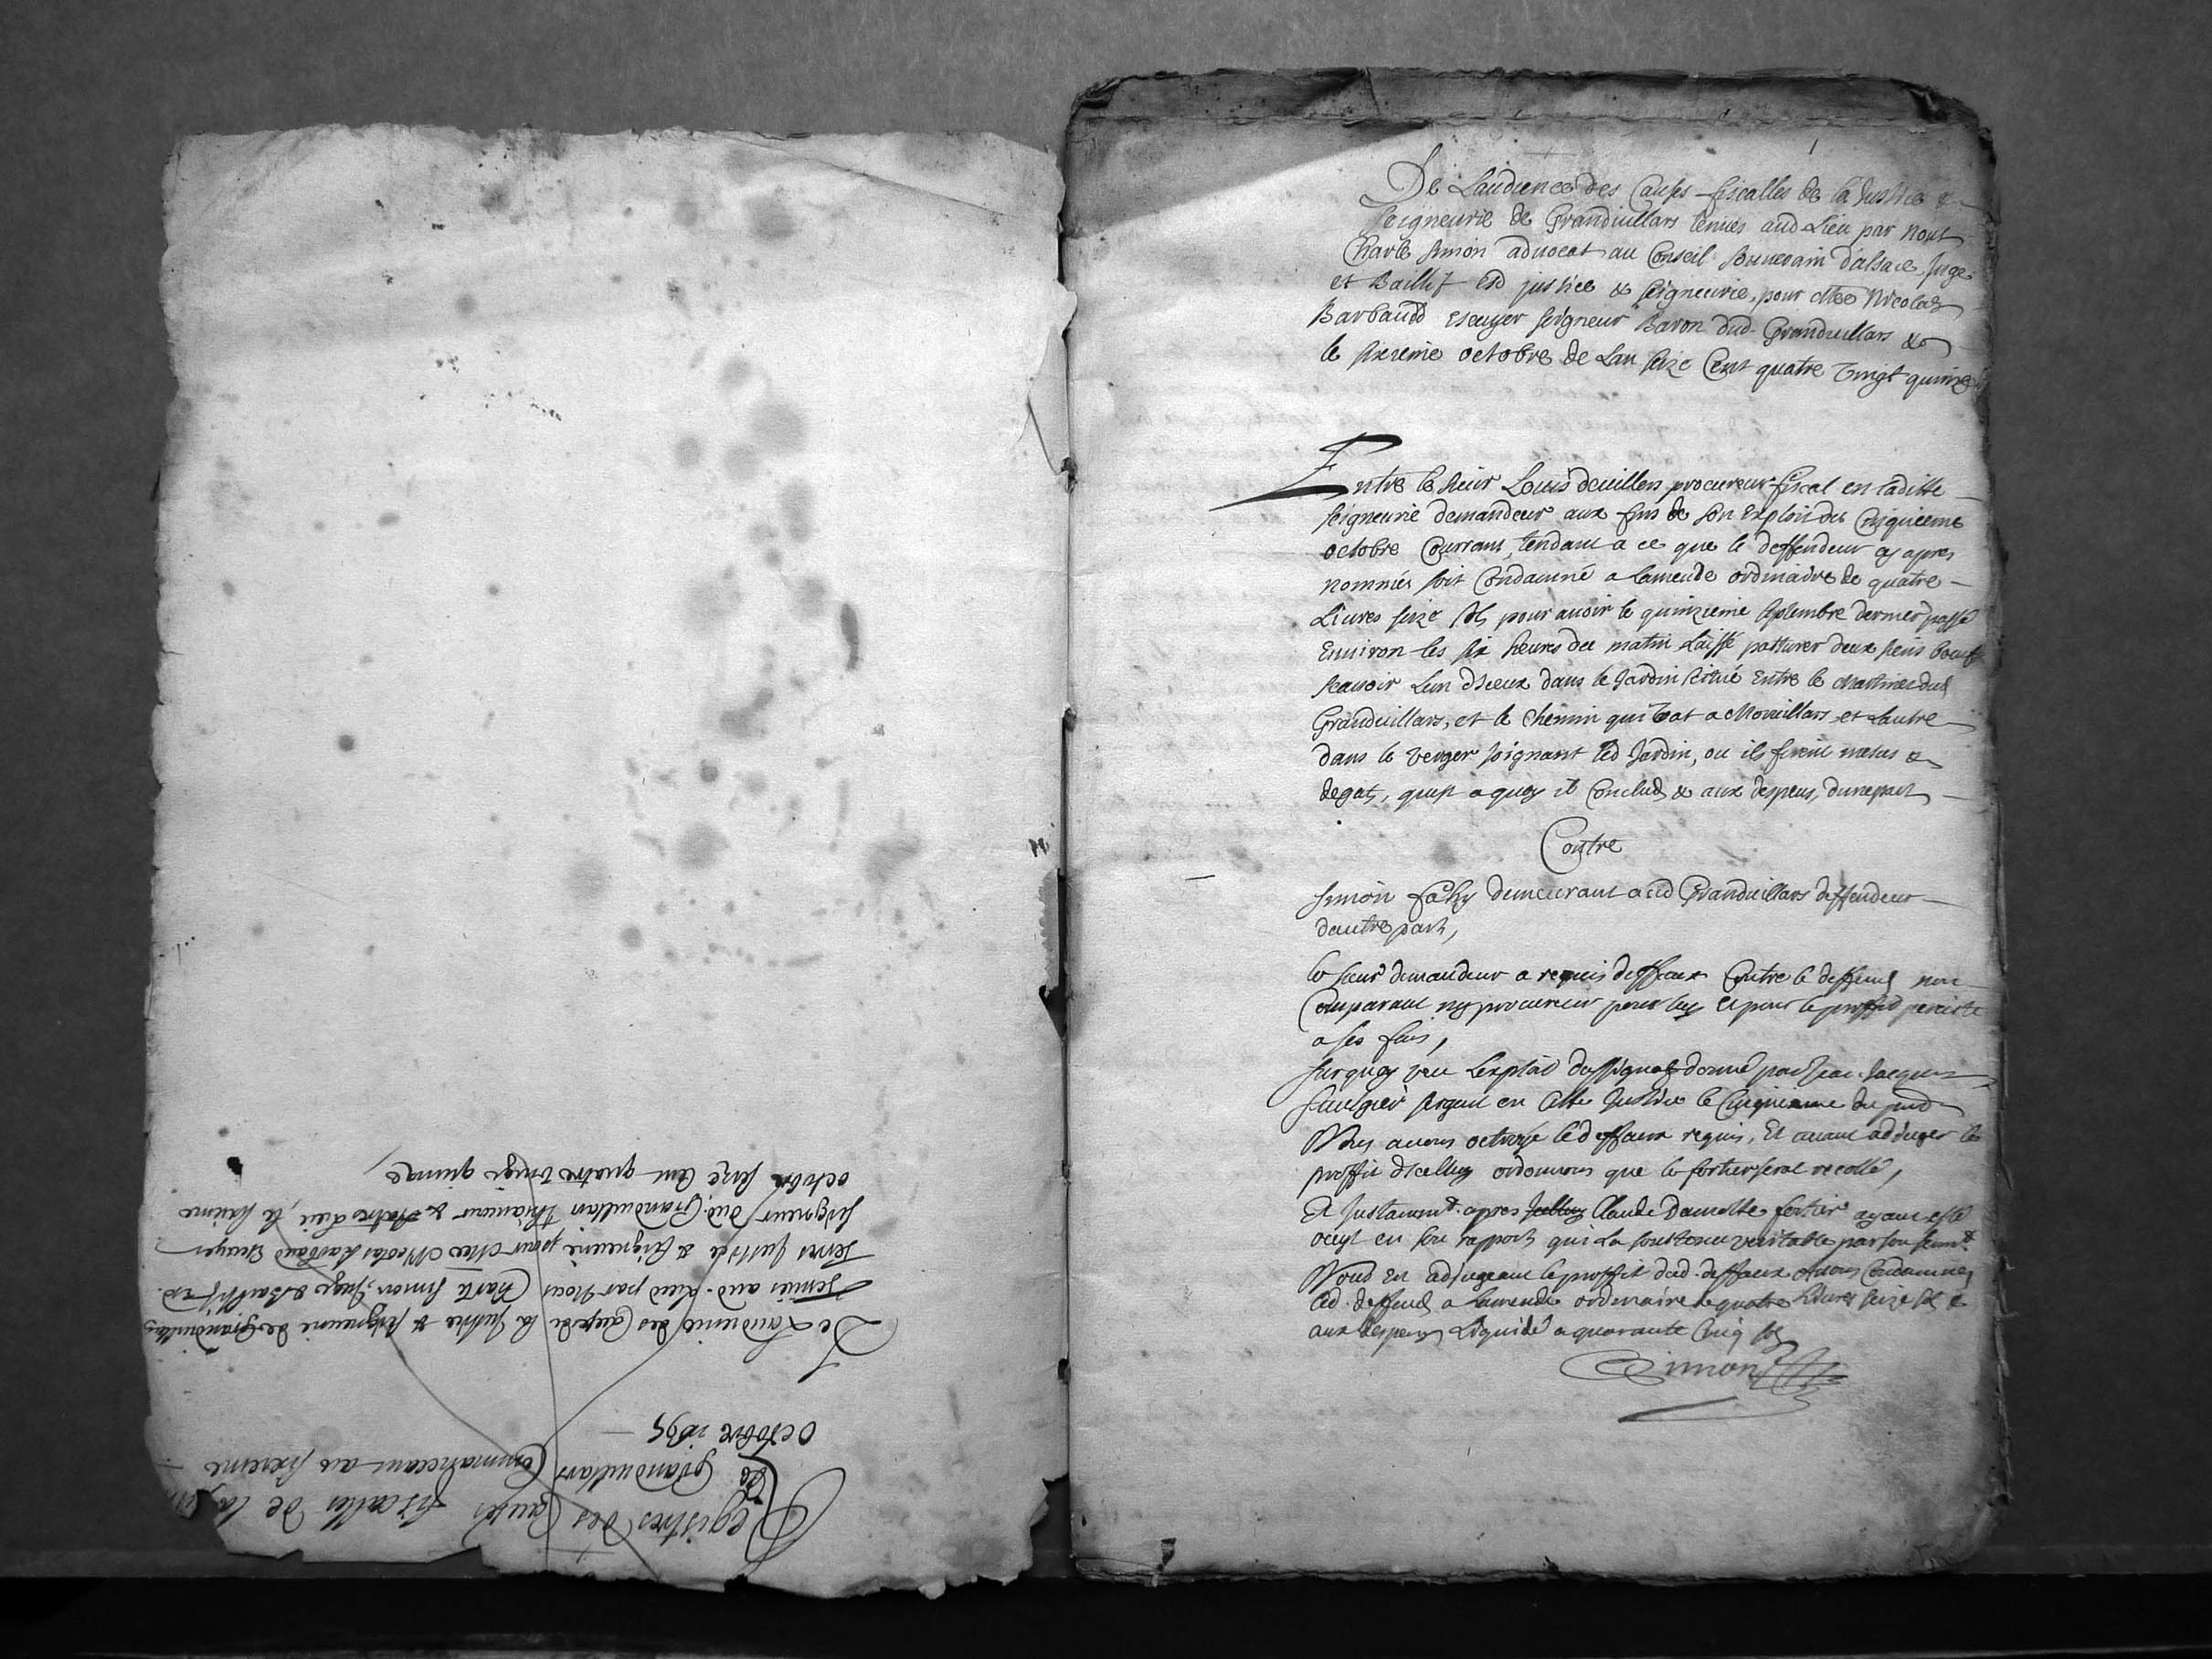 Registres des Causes fiscalles de la
de Granduillars Commanceant au sixieme
Octobre 1695
De Laudience des Causes de la justice & seigneurie de Granduillars
tenues aud. Lieu par Nous Charle Simon, Juge & Baillif esd.
justice & seigneurie pour Nicolas Barbaud Escuyer
seigneur dud. Granduillars & autre Lieu, le sixieme
octobre seize cent quatre vingt quinze
De Laudience des Causes fiscalles de la Justice &
seigneurie de Granduillars tenues aud Lieu par nous
Charle Simon advocat au Conseil Souuerain d'alsace, Juge
et Baillif esd justice & seigneurie, pour Nicolas
Barbaudd escuyer seigneur Baron dud. Granduillars &c
le sixieme octobre de Lan seize Cent quatre Vingt quinze
Entre le sieur Louis deuillers procureur fiscal en laditte
seigneurie demandeur aux fins de son Exploit du Cinquieme
octobre Courrant, tendant a ce que le deffendeur cy apres
nommés soit Condamné a lamende ordinaire de quatre
Liures seize sols pour auoir le quinzieme septembre dernier passé
Enuiron les six heures du matin Laissé patturer deux siens boeufs
scauoir Lun d'iceux dans le Jardin scitué Entre le Martinet dud
Granduillars, et le Chemin qui Vat a Moruillars, et Lautre
dans le verger joignant led Jardin, ou ils firent mesus &
degats, quest a quoy il Conclud & aux despens, dunepart
Contre
Simon demeurant aud Granduillars deffendeur
dautre part,
le sieur demandeur a requis deffaux Contre le deffend non
Comparant ny procureur pour luy Et pour le proffit persiste
a ses fins,
Surquoy veu Lexploit dassignaon donné par Jean Jacques
sergent en Cette Justice le Cinquieme du
Nous auons octroyé led deffaux requis, Et auant adjuger le
proffit d'icelluy ordonnons que le fortier serat recollé,
Et Justamt. apres Claude Damotte fortier ayant esté
oüyt en son rapport qui La soustenu veritable par son sermt.
Nous en adjugeant le proffit dud. deffaux Auons Condamné
led. deffend a Lamende ordinaire de quatre Liures seize sols &
aux despens Liquidé a quarante Cinq sols
Simon